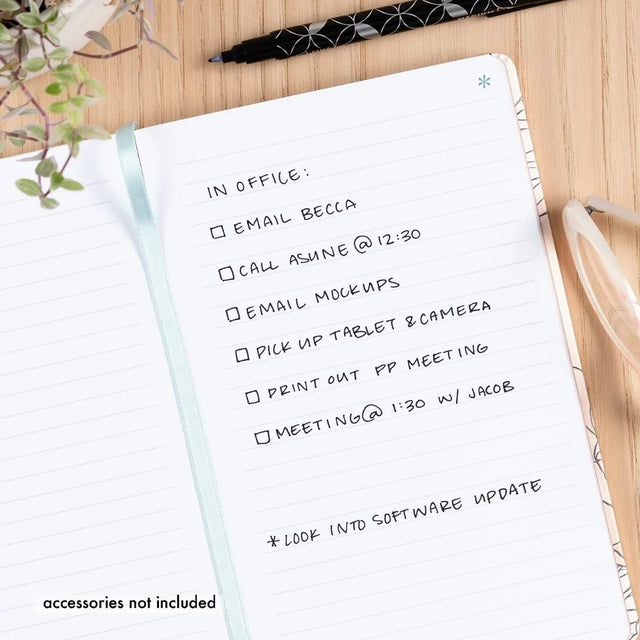 IN OFFICE:
☐ EMAIL BECCA
☐ CALL ASUNE @ 12:30
☐ EMAIL MOCKUPS
☐ PICK UP TABLET & CAMERA
☐ PRINT OUT PP MEETING
☐ MEETING @ 1:30 W/ JACOB
* LOOK INTO SOFTWARE UPDATE
accessories not included